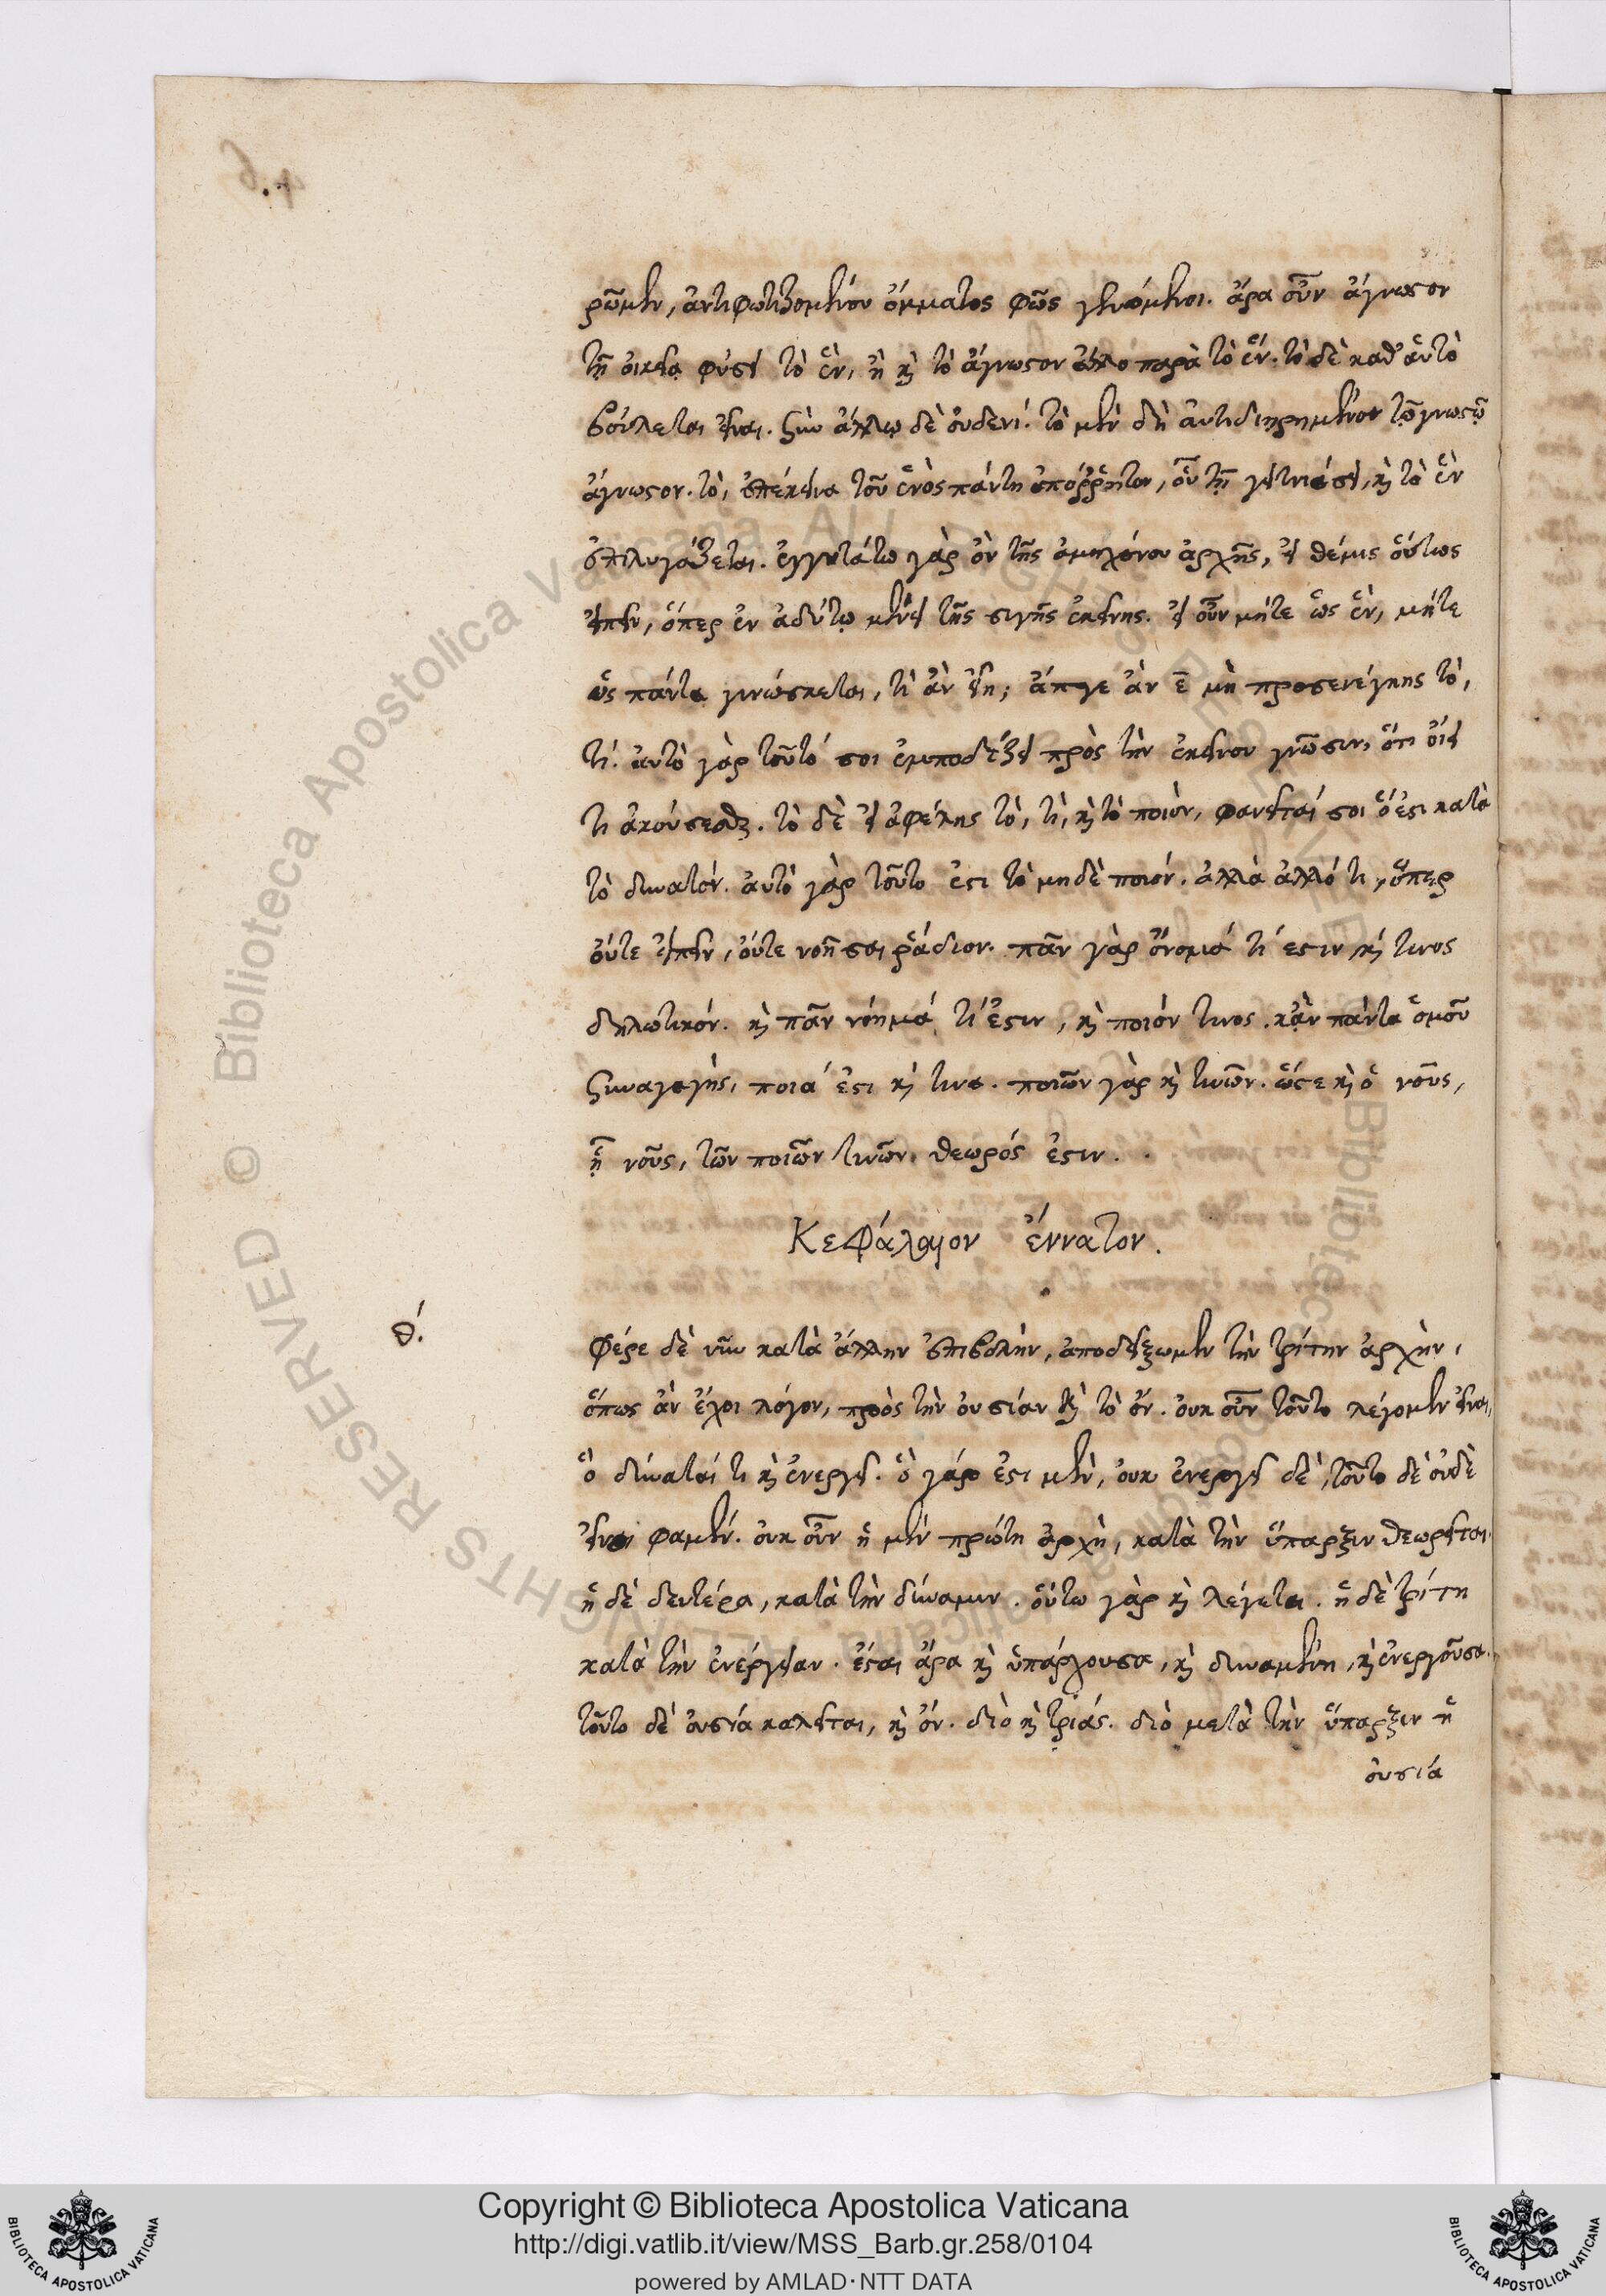 ρῶμεν, ἀντιφωτιζομένου ὄμματος φῶς γενόμενοι. ἄρα οὖν ἄγνωστον
τῇ οἰκείᾳ φύσει τὸ ἓν, ἢ καὶ τὸ ἄγνωστον ἄλλο παρὰ τὸ ἕν. τὸ δὲ καθ' αὑτὸ
βούλεται εἶναι. ξὺν ἄλλῳ δὲ οὐδενί. τὸ μὲν δὴ ἀντιδιῃρημένον τῷ γνωστῷ
ἄγνωστον. τὸ, ἐπέκεινα τοῦ ἑνὸς πάντη ἀπόρῥητον, οὗ τῇ γειτνιάσει, καὶ τὸ ἓν
ἐπιλυγάζεται. ἐγγυτάτω γὰρ ὂν τῆς ἀμηχάνου ἀρχῆς, εἰ θέμις οὕτως
εἰπεῖν, ὅπερ ἐν ἀδύτῳ μένει τῆς σιγῆς ἐκείνης. εἰ οὖν μήτε ὡς ἓν, μήτε
ὡς πάντα γινώσκεται, τὶ ἂν εἴη; ἄπαγε ἂν μὴ προσενέγκης τὸ,
τί. αὐτὸ γὰρ τοῦτό σοι ἐμποδίζει πρὸς τὴν ἐκείνου γνῶσιν, ὅτι οἴει
τι ἀκούσεσθαι. τὸ δὲ εἰ ἀφέλῃς τὸ, τὶ, καὶ τὸ ποιὸν, φανεῖταί σοι ὅ ἐστι κατὰ
τὸ δυνατόν. αὐτὸ γὰρ τοῦτο ἐστι τὸ μηδὲ ποιόν. ἀλλὰ ἀλλό τι, ὅπερ
οὔτε εἰπεῖν, οὔτε νοῆσαι ῥάδιον. πᾶν γὰρ ὄνομά τί ἐστιν καί τινος
δηλωτικόν. καὶ πᾶν νόημά τί ἐστιν, καὶ ποιόν τινος. κἂν πάντα ὁμοῦ
ξυναγαγῇς, ποιά ἐστι καί τινα. ποιῶν γὰρ καὶ τινῶν. ὥστε καὶ ὁ νοῦς,
ᾗ νοῦς, τῶν ποιῶν τινῶν θεωρός ἐστιν.
Κεφάλαιον ἔννατον.
θ΄.
Φέρε δὲ νῦν κατὰ ἄλλην ἐπιβολὴν, ἀποδείξωμεν τὴν τρίτην ἀρχὴν,
ὅπως ἂν ἔχοι λόγον, πρὸς τὴν οὐσίαν καὶ τὸ ὄν. οὐκ οὖν τοῦτο λέγομεν εἶναι,
ὃ δύναταί τι καὶ ἐνεργεῖ. ὃ γάρ ἐστι μὲν, οὐκ ἐνεργεῖ δὲ, τοῦτο δὲ οὐδὲ
εἶναι φαμέν. οὐκ οὖν ἡ μὲν πρώτη ἀρχὴ, κατὰ τὴν ὕπαρξιν θεωρεῖται.
ἡ δὲ δευτέρα, κατὰ τὴν δύναμιν. οὕτω γὰρ καὶ λέγεται. ἡ δὲ τρίτη
κατὰ τὴν ἐνέργειαν. ἔσται ἄρα καὶ ὑπάρχουσα, καὶ δυναμένη, καὶ ἐνεργοῦσα.
τοῦτο δὲ οὐσία καλεῖται, καὶ ὄν. διὸ καὶ τριάς. διὸ μετὰ τὴν ὕπαρξιν ἡ
οὐσία
© Biblioteca Apostolica Vaticana ALL RIGHTS RESERVED
Copyright © Biblioteca Apostolica Vaticana
http://digi.vatlib.it/view/MSS_Barb.gr.258/0104
powered by AMLAD·NTT DATA
BIBLIOTECA APOSTOLICA VATICANA
BIBLIOTECA APOSTOLICA VATICANA